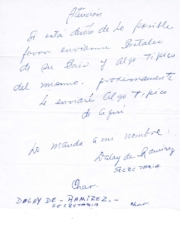 Atención
Si esta dentro de lo posible
favor enviarme Postales
de su País y algo típico
del mismo. proximamente
le enviaré algo típico
de aquí
Lo mando a mi nombre:
Daley de Ramírez
SECRETARIA
Char
DALEY DE - RAMIREZ. -
SECRETARIA
Char